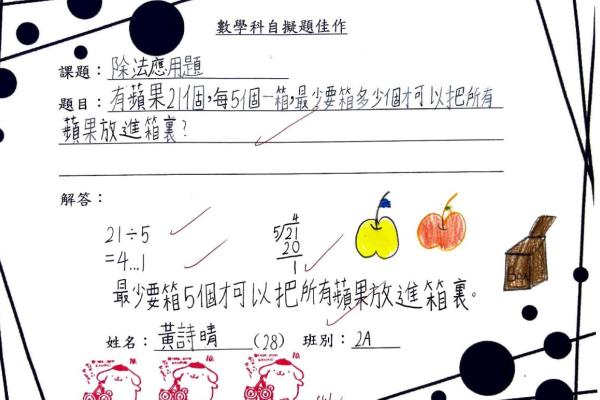 數學科自擬題佳作
課題：除法應用題
題目：有蘋果21個，每5個一箱，最少要箱多少個才可以把所有
蘋果放進箱裏？
解答：
21÷5
=4...1
4
5√21
20
1
最少要箱5個才可以把所有蘋果放進箱裏。
BOX
姓名：黃詩晴（28） 班別：2A